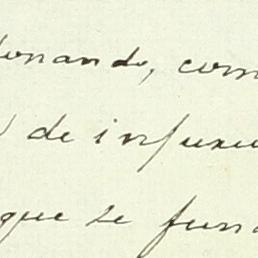 onando, com
de infuru
que se fun